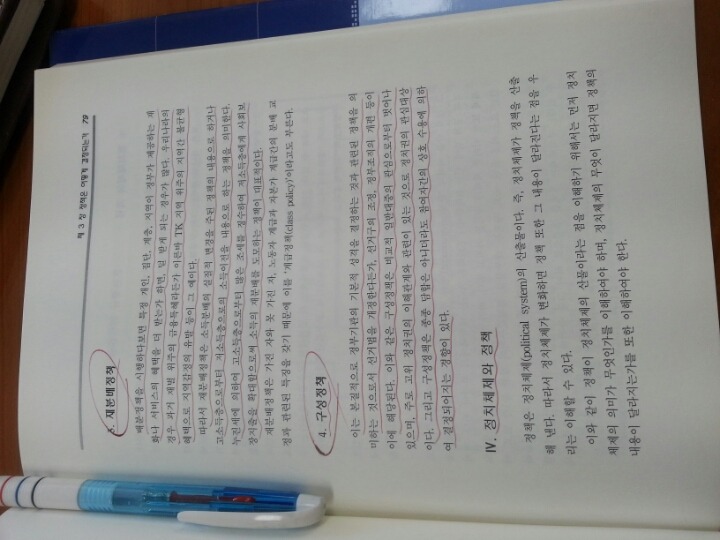 제 3 장 정책은 어떻게 결정되는가 79
3. 재분배정책
배분정책을 시행하다보면 특정 개인, 집단, 계층, 지역이 정부가 제공하는 재
화나 서비스의 혜택을 더 받는가 하면, 덜 받게 되는 경우가 많다. 우리나라의
경우 과거 재벌 위주의 금융특혜라든가 이른바 TK 지역 위주의 지역간 불균형
혜택으로 지역감정의 유발 등이 그 예이다.
따라서 재분배정책은 소득분배의 실질적 변경을 수된 정책의 내용으로 하거나
고소득층으로부터 저소득층으로의 소득이전을 내용으로 하는 정책을 의미한다.
누진세에 의하여 고소득층으로부터 많은 조세를 징수하여 저소득층에게 사회보
장지출을 확대함으로써 소득의 재분배를 도모하는 정책이 대표적이다.
재분배정책은 가진 자와 못 가진 자, 노동자 계급과 자본가 계급간의 분배 교
정과 관련된 특징을 갖기 때문에 이를 '계급정책(class policy)'이라고도 부른다.
4. 구성정책
이는 본질적으로 정부기관의 기본적 성격을 결정하는 것과 관련된 정책을 의
미하는 것으로서 선거법을 개정한다든가, 선거구의 조정, 정부조직의 개편 등이
이에 해당된다. 이와 같은 구성정책은 비교적 일반대중의 관심으로부터 벗어나
있으며, 주로 고위 정치권의 이해관계와 관련이 있는 것으로 정치권의 관심대상
이다. 그리고 구성정책은 종종 담합은 아니더라도 참여자간의 상호 수용에 의하
여 결정되어지는 경향이 있다.
IV. 정치체제와 정책
정책은 정치체제(political system)의 산출물이다. 즉, 정치체제가 정책을 산출
해 낸다. 따라서 정치체제가 변화하면 정책 또한 그 내용이 달라진다는 점을 우
리는 이해할 수 있다.
이와 같이 정책이 정치체제의 산물이라는 점을 이해하기 위해서는 먼저 정치
체제의 의미가 무엇인가를 이해하여야 하며, 정치체제의 무엇이 달라지면 정책의
내용이 달라지는가를 또한 이해하여야 한다.